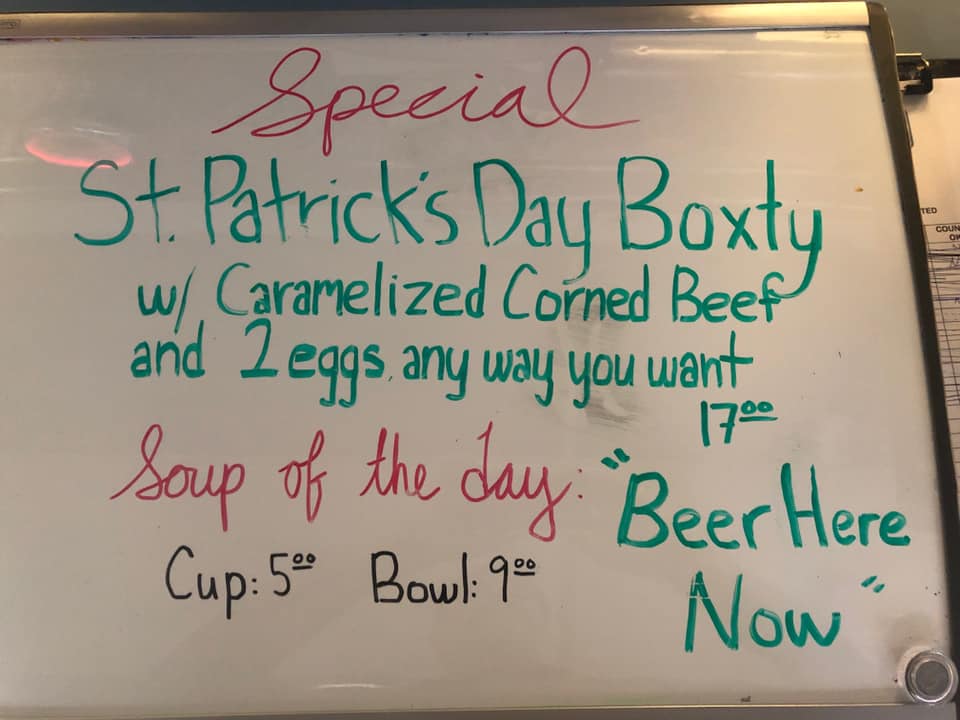 Special
St. Patrick's Day Boxty
w/ Caramelized Corned Beef
and 2 eggs, any way you want
17⁰⁰
Soup of the day: "Beer Here
Now"
Cup: 5⁰⁰ Bowl: 9⁰⁰
TED
COUN